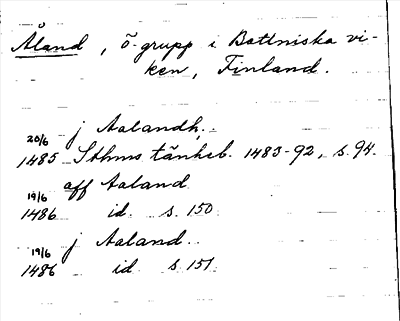 Åland, ö-grupp i Bottniska vi-
ken, Finland.
20/6 j Aalandh.
1485 Sthms tänkeb. 1483-92, s. 94.
19/6 aff Aaland
1486 id. s. 150
19/6 j Aaland.
1486 id. s 151.